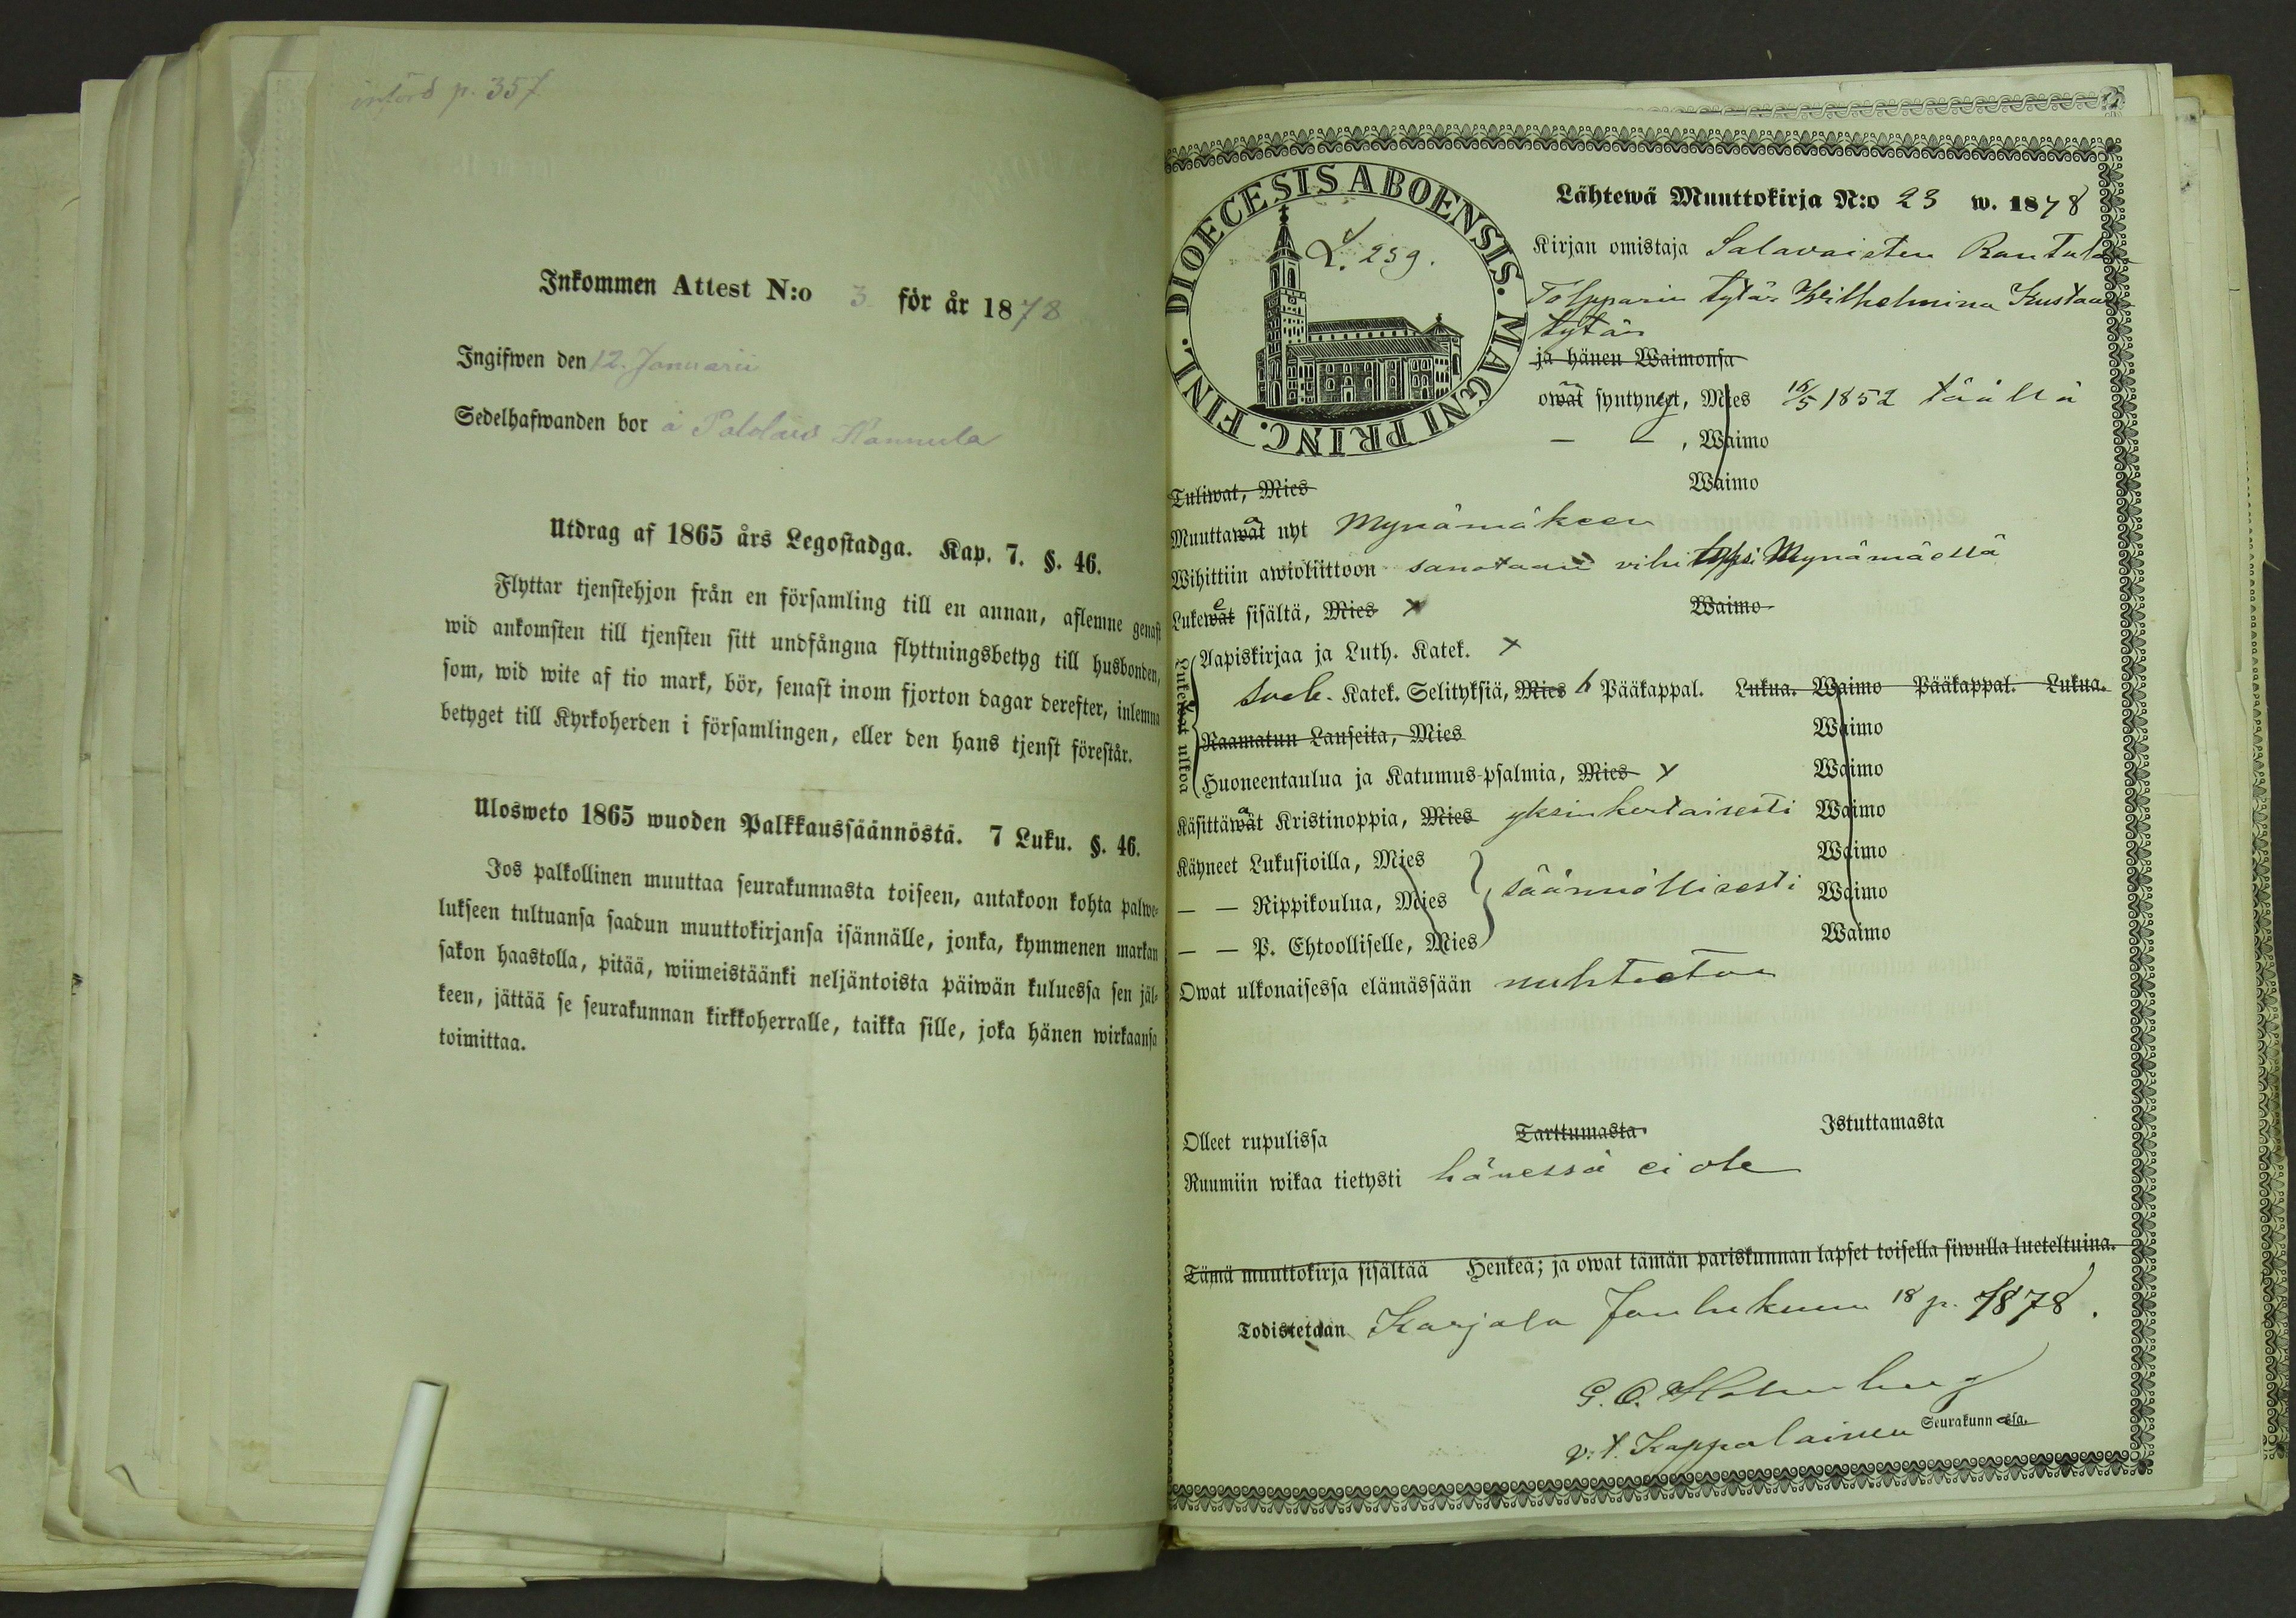 införd p. 357
Inkommen Attest N:o 3 för år 1878
Ingifwen den 12. Januarii
Sedelhafwanden bor å Palolais Hannula
Utdrag af 1865 års Legostadga. Kap. 7. §. 46.
Flyttar tjenstehjon från en församling till en annan, aflemne genast
wid ankomsten till tjensten sitt undfångna flyttningsbetyg till husbonden,
som, wid wite af tio mark, bör, senast inom fjorton dagar derefter, inlemna
betyget till Kyrkoherden i församlingen, eller den hans tjenst förestår.
Ulosweto 1865 wuoden Palkkaussäännöstä. 7 Luku. §. 46.
Jos palkollinen muuttaa seurakunnasta toiseen, antakoon kohta palwe-
lukseen tultuansa saadun muuttokirjansa isännälle, jonka, kymmenen markan
sakon haastolla, pitää, wiimeistäänki neljäntoista päiwän kuluessa sen jäl-
keen, jättää se seurakunnan kirkkoherralle, taikka sille, joka hänen wirkaansa
toimittaa.
DIOECESIS ABOENSIS. MAGNI PRINC. FINL.
L. 259.
Lähtewä Muuttokirja N:o 23 w. 1878
Kirjan omistaja Salavaisten Rantalan
Tölpparin tytär Wilhelmina Kustaan
tytär
ja hänen Waimonsa
owat syntynyt, Mies 16/5 1852 täällä
— — , Waimo
Tuliwat, Mies Waimo
Muuttawat nyt Mynämäkeen
Wihittiin awioliittoon sanotaan vihityksi Mynämäessä
Lukewat sisältä, Mies x Waimo
Lukewat ulkoa
Aapiskirjaa ja Luth. Katek. x
Sveb. Katek. Selityksiä, Mies 6 Pääkappal. Lukua. Waimo Pääkappal. Lukua.
Raamatun Lauseita, Mies Waimo
Huoneentaulua ja Katumus-psalmia, Mies x Waimo
Käsittäwät Kristinoppia, Mies yksinkertaisesti Waimo
Käyneet Lukusioilla, Mies Waimo
— — Rippikoulua, Mies säännöllisesti Waimo
— — P. Ehtoolliselle, Mies Waimo
Owat ulkonaisessa elämässään nuhteeton
Olleet rupulissa Tarttumasta Istuttamasta
Ruumiin wikaa tietysti hänessä ei ole
Tämä muuttokirja sisältää Henkeä; ja owat tämän pariskunnan lapset toisella siwulla lueteltuina.
Todistetaan Karjala Joulukuun 18 p. 1878.
G. O. Holmberg
v. t. Kappalainen Seurakunnassa.